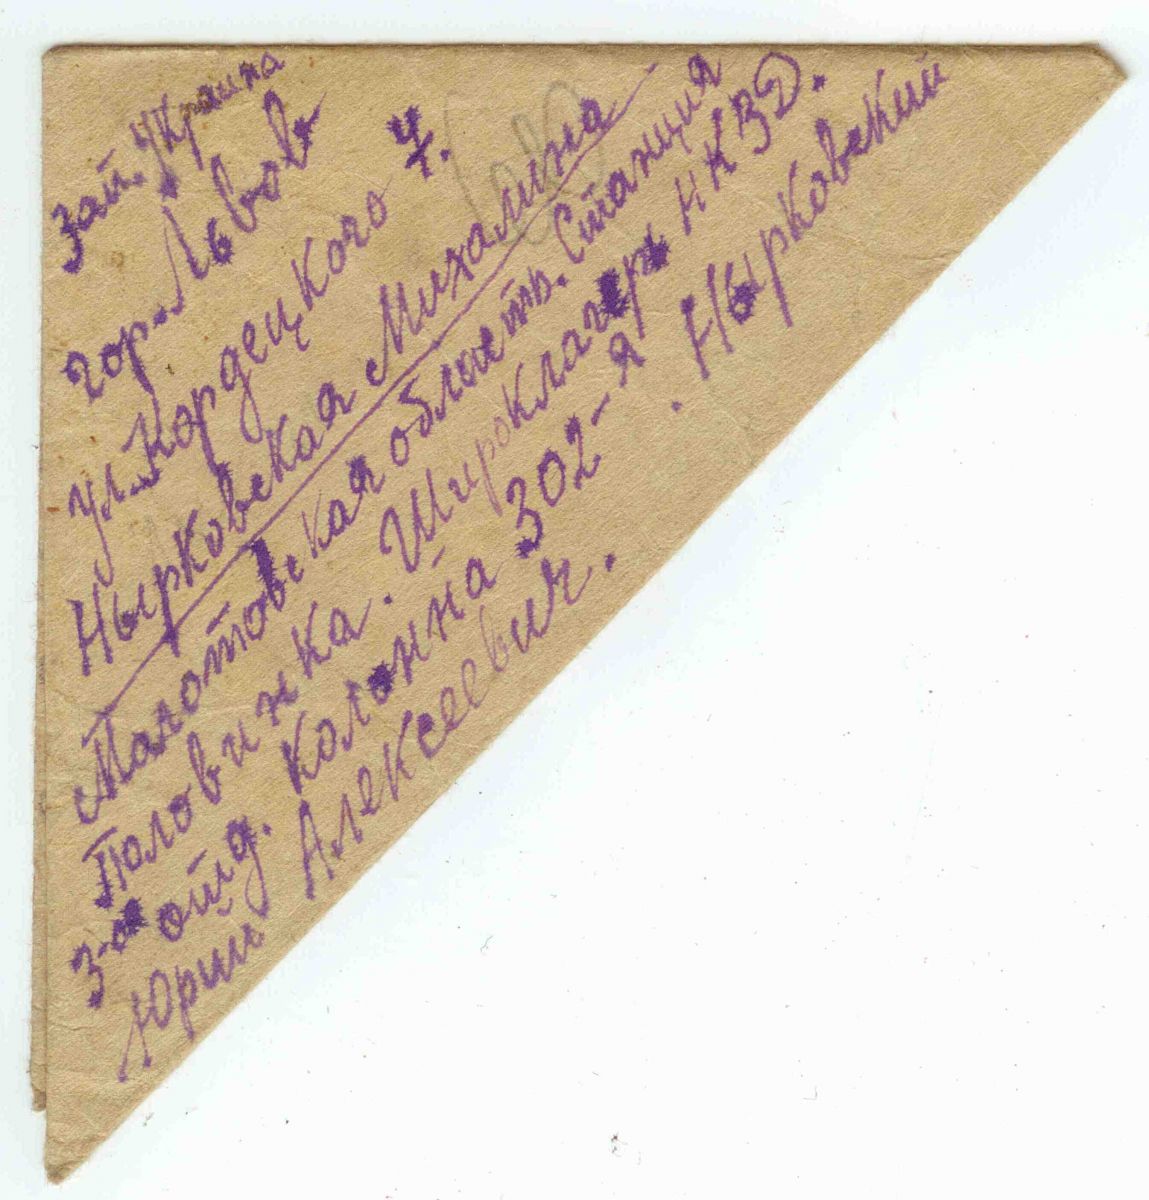 Зай. Украина
гор. Львов
ул. Кордецкого 4.
Нырковская Михалина
Молотовская область. Станция
Половинка. Широклагерь НКВД.
3-ое отд. Колонна 302-я. Нырковский
Юрий Алексеевич.